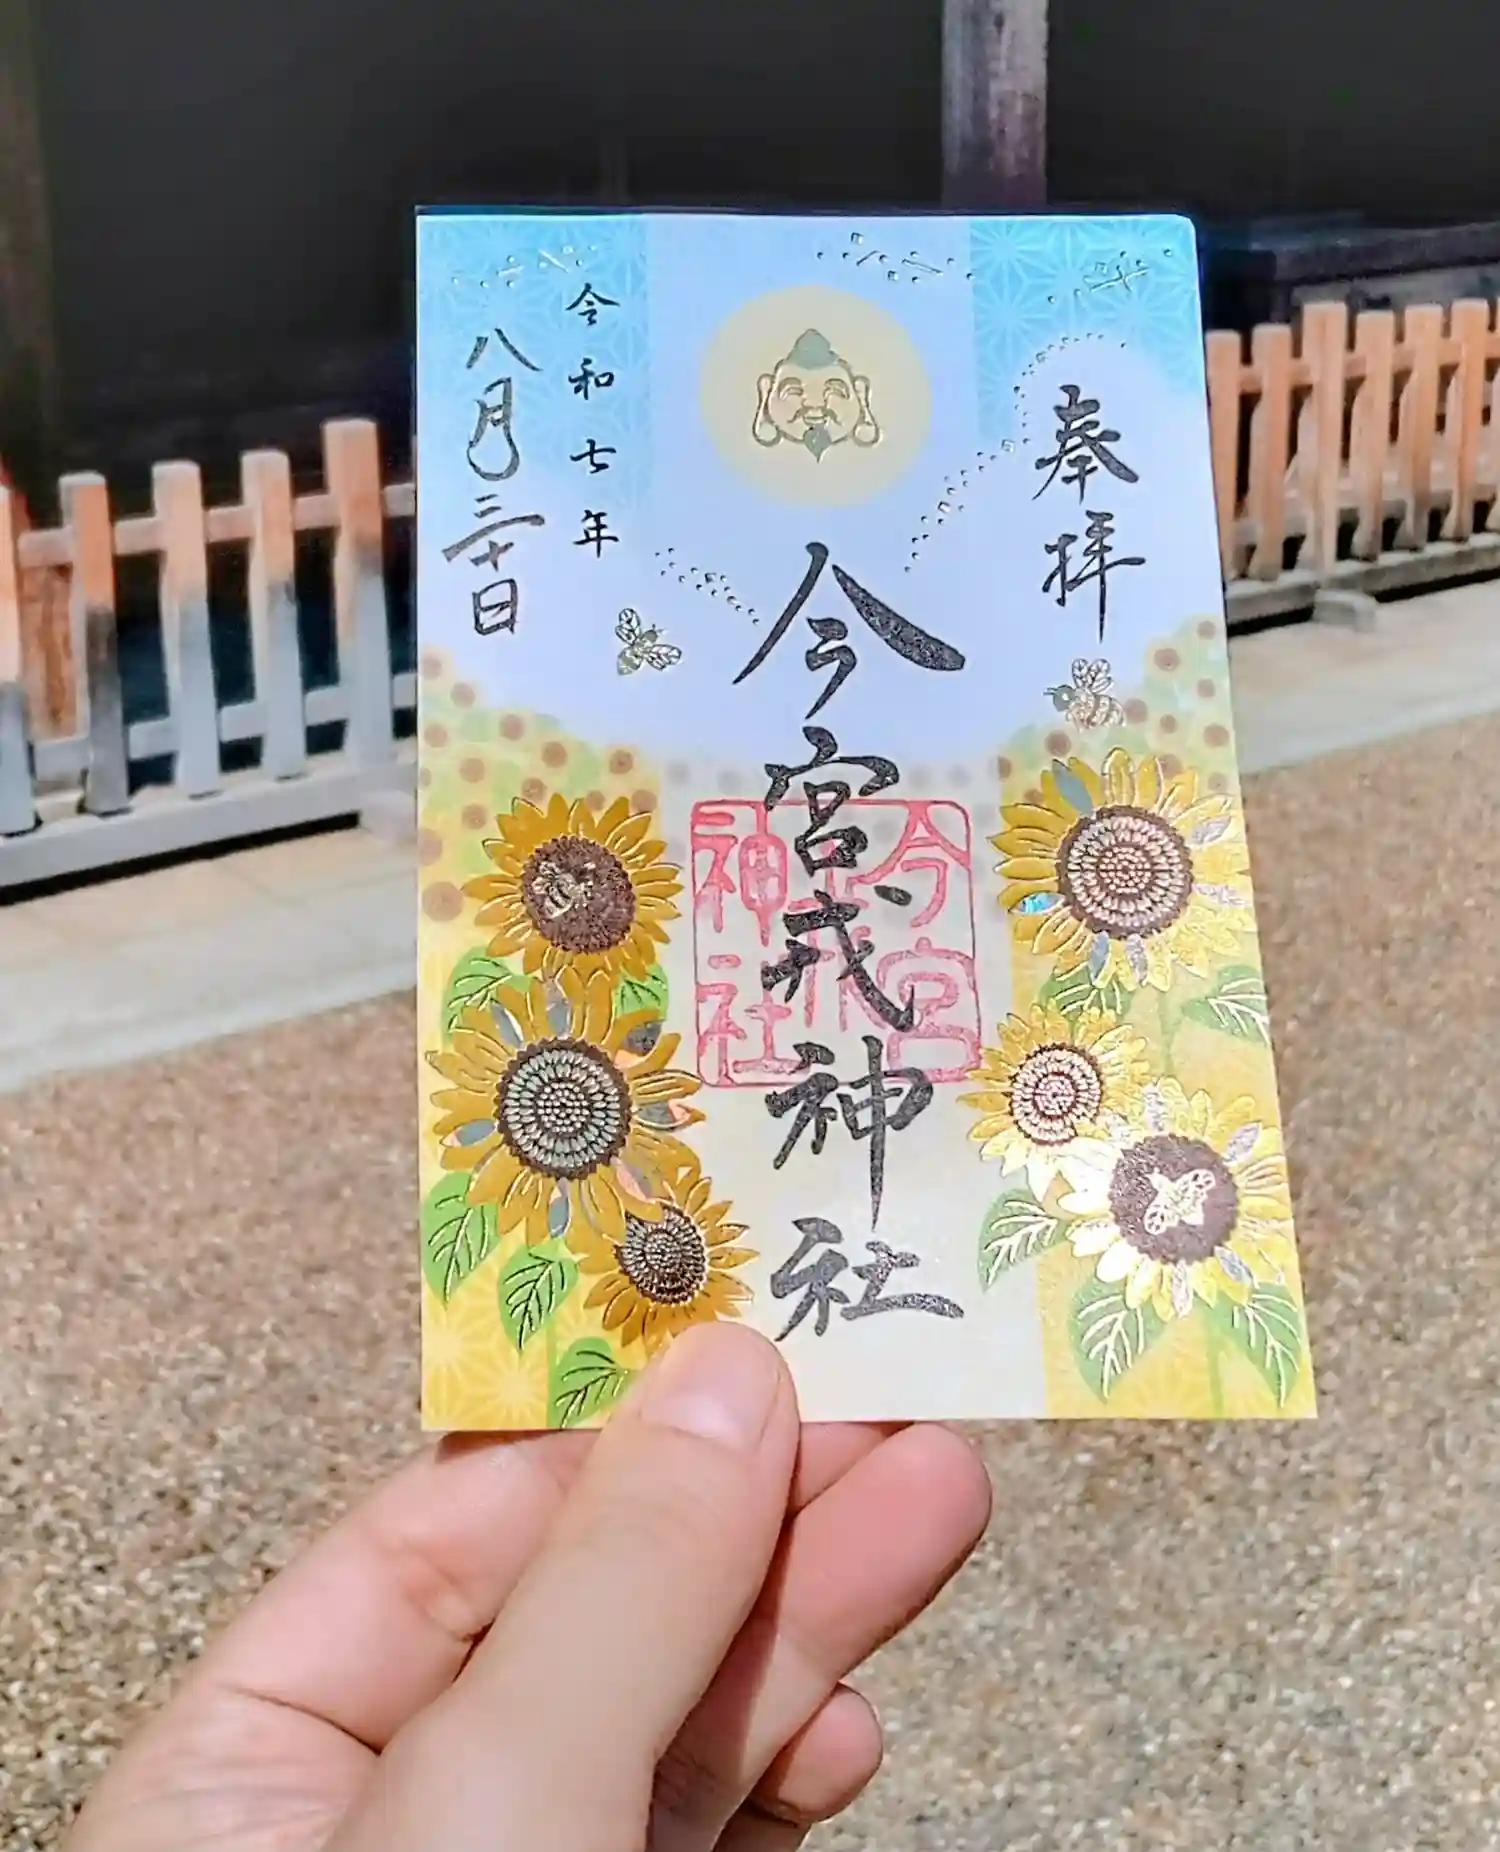 奉拝
今宮戎神社
今宮
戎
神社
令和七年
八月三十日